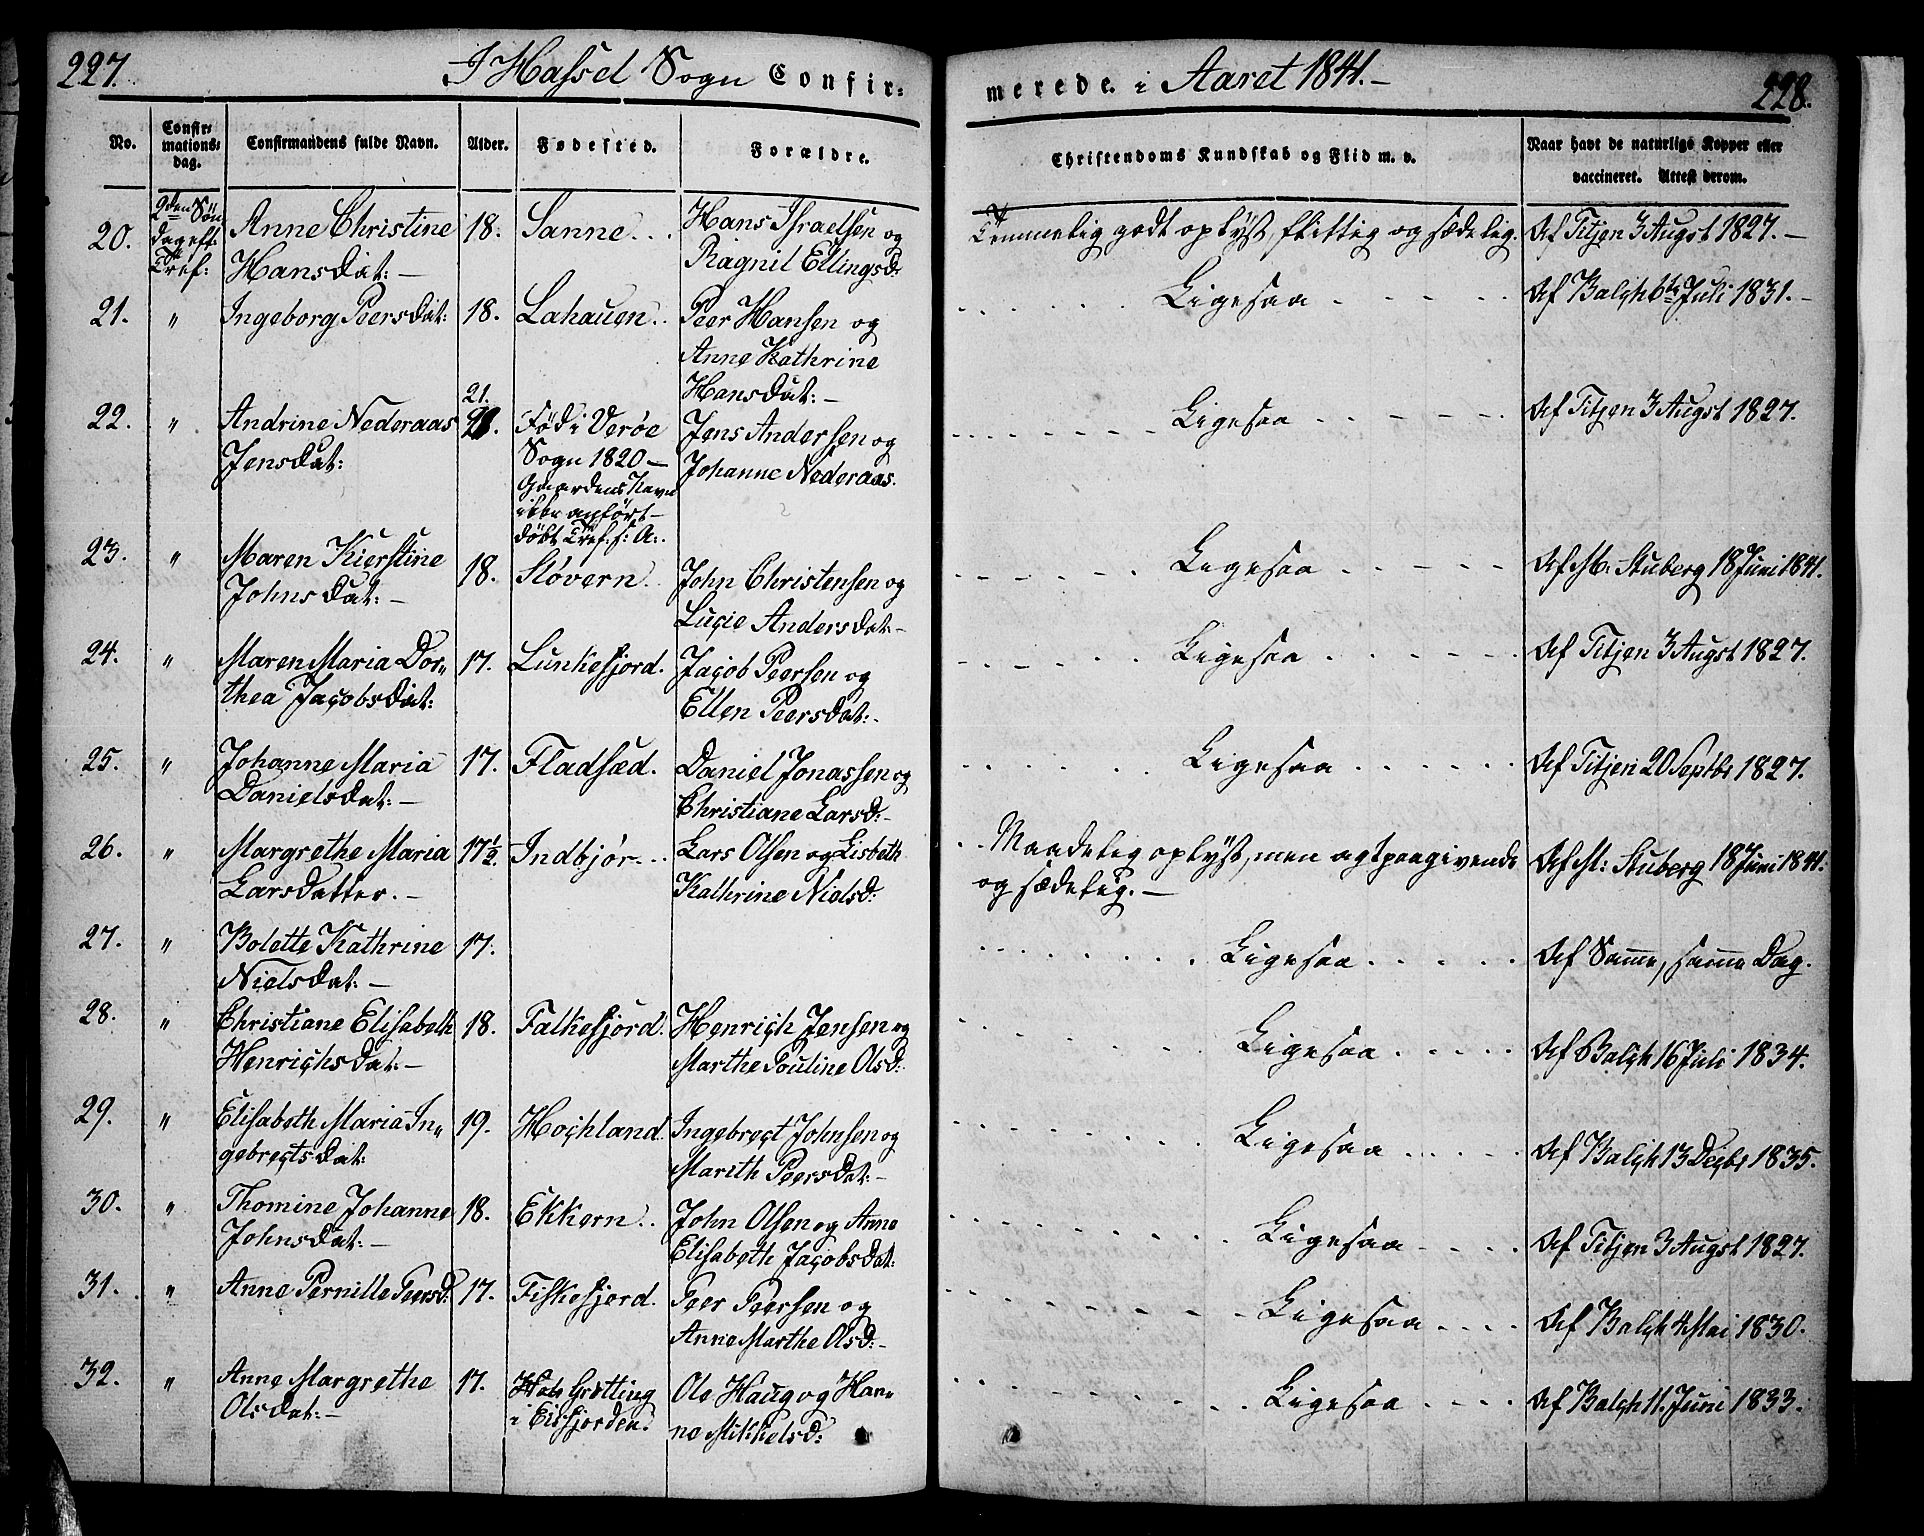 227.
I Hassel Sogn Confir-
merede i Aaret 1841.-
228.
No.
Confir-
mations-
dag.
Confirmandens fulde Navn.
Alder.
Fødested.
Forældre.
Christendoms Kundskab og Flid m. v.
Naar havt de naturlige Kopper eller
vaccineret. Attest derom.
20. 2den Søn Anne Christine 18. Sanne... Hans Israelsen og Temmelig godt oplyst, flittig og sædelig. Af Titjen 3 Augst 1827.-
dag eft:
Tref: Hansdat:- Ragnil Ellingsd:
21. " Ingeborg Peersdat: 18. Lahauen.. Peer Hansen og Ligesaa Af Balch 6te Juli 1831.-
Anne Kathrine
Hansdat:-
21.
22. " Andrine Nederaas Fød i Verøe Jens Andersen og Ligesaa Af Titjen 3 Augst 1827.
Jensdat: Sogn 1820- Johanne Nederaas.
Gaardens Navn
ikke anført-
døbt Tref. f: A:.
23. " Maren Kierstine 18. Støvern.. John Christensen og Ligesaa Af M: Stuberg 18 Juni 1841.
Johnsdat:- Lucie Andersdat:-
24. " Maren Maria Dor- 17. Lunkefjord. Jacob Peersen og Ligesaa Af Titjen 3 Augst 1827.
thea Jacobsdat: Ellen Peersdat:-
25. " Johanne Maria 17. Fladsæd. Daniel Jonassen og Ligesaa Af Titjen 20 Septbr 1827.
Danielsdat:- Christiane Larsd:-
26. " Margrethe Maria 17½. Indbjør... Lars Olsen og Lisbeth Maadelig oplyst, men agtpaagivende Af M: Stuberg 18 Juni 1841.
Larsdatter.- Kathrine Nielsd: og sædelig.-
27. " Bolette Kathrine 17. Ligesaa Af Samme, samme Dag.
Nielsdat:-
28. " Christiane Elisabeth 18. Falkefjord. Henrich Jensen og Ligesaa Af Balch 16 Juli 1834.
Henrichsdat:- Marthe Pouline Olsd:
29. " Elisabeth Maria In- 19. Hochland. Ingebrect Johnsen og Ligesaa Af Balch 13 Decbr 1835.
gebrectsdat: Marith Peersdat:-
30. " Thomine Johanne 18. Ekkern.. John Olsen og Anne Ligesaa Af Titjen 3 Augst 1827.
Johnsdat:- Elisabeth Jacobsdat:
31. " Anne Pernille Peersd: 17. Fiskefjord. Peer Peersen og Ligesaa Af Balch 4 Mai 1830.
Anne Marthe Olsd:-
32. " Anne Margrethe 17. Grøtting Ole Haug og Han- Ligesaa Af Balch 11. Juni 1833.
Olsdat:- i Eisfjorden. ne Mikkelsd: